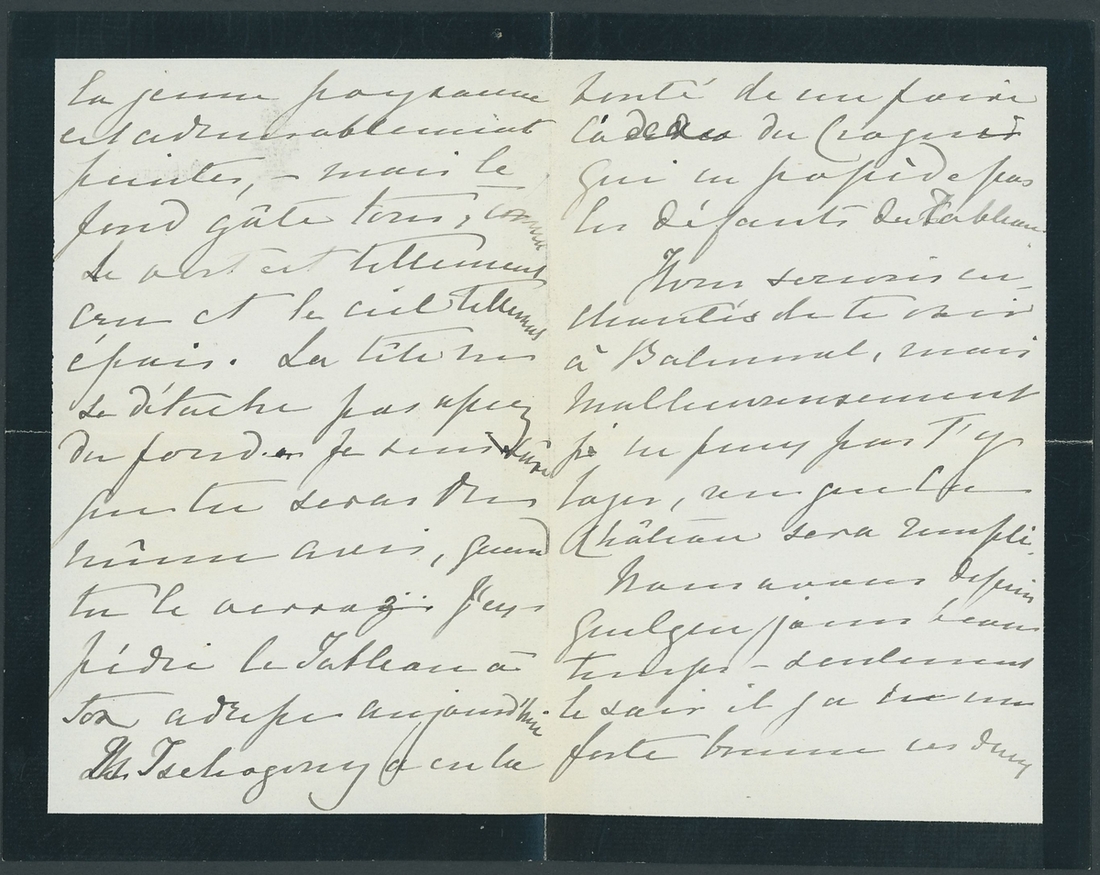 la jeune paysanne
est admirablement
peinte, – mais le
fond gâte tout, comme
le vert est tellement
cru et le ciel tellement
épais. La tête ne
se détache pas assez
du fond. Je suis sûre
que tu seras du
même avis, quand
tu le verras. J'ex-
pédie le Tableau à
ton adresse aujourd'hui.
a eu la
bonté de me faire
cadeau du
qui ne possède pas
les défauts du Tableau.
Nous serions en-
chantés de te voir
à Balmoral, mais
malheureusement
je ne puis pas t'y
loger, vu que le
Château sera rempli.
Nous avons depuis
quelques jours beau
temps – seulement
le soir il y a eu une
forte brume ces deux